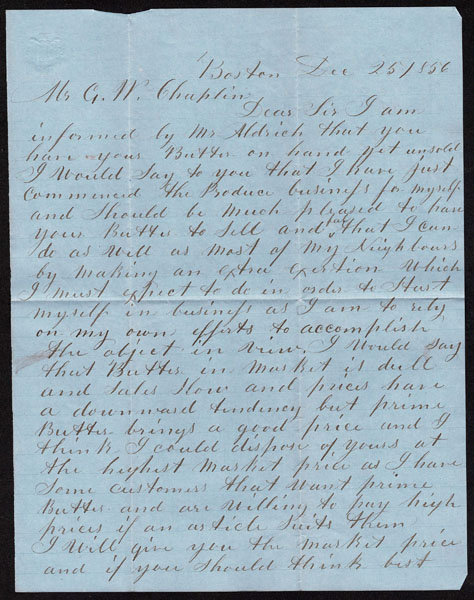 Boston Dec 25/1856
Mr G. W. Chaplin
Dear Sir I am
informed by Mr Aldrich that you
have your Butter on hand yet unsold
I Would Say to you that I have Just
Commenced the Produce business for myself
and Should be Much pleased to have
your Butter to Sell and that I can
do as Well as Most of My Neighbours
by Making an extra exertion Which
I Must expect to do in order to Start
Myself in business as I am to rely
on my own efforts to accomplish
the object in view. I Would Say
that Butter in Market is dull
and Sales Slow and prices have
a downward tendency but prime
Butter brings a good price and I
think I could dispose of yours at
the highest Market price as I have
Some customers that Want prime
Butter and are Willing to pay high
prices if an article Suits them
I Will give you the Market price
and if you Should think best